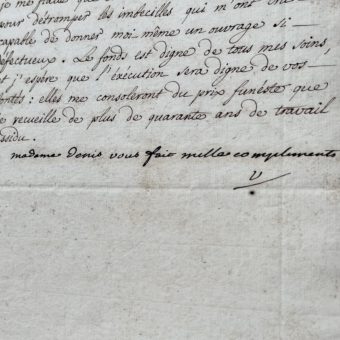 je me
pour détromper les imbecilles qui m'ont cru
capable de donner moi-même un ouvrage si
défectueux. Le fonds est digne de tous mes soins,
et j'espère que l'execution sera digne de vos
bontés: elles me consoleront du prix funéste que
je recueille de plus de quarante ans de travail
assidu.
madame denis vous fait mille compliments
V